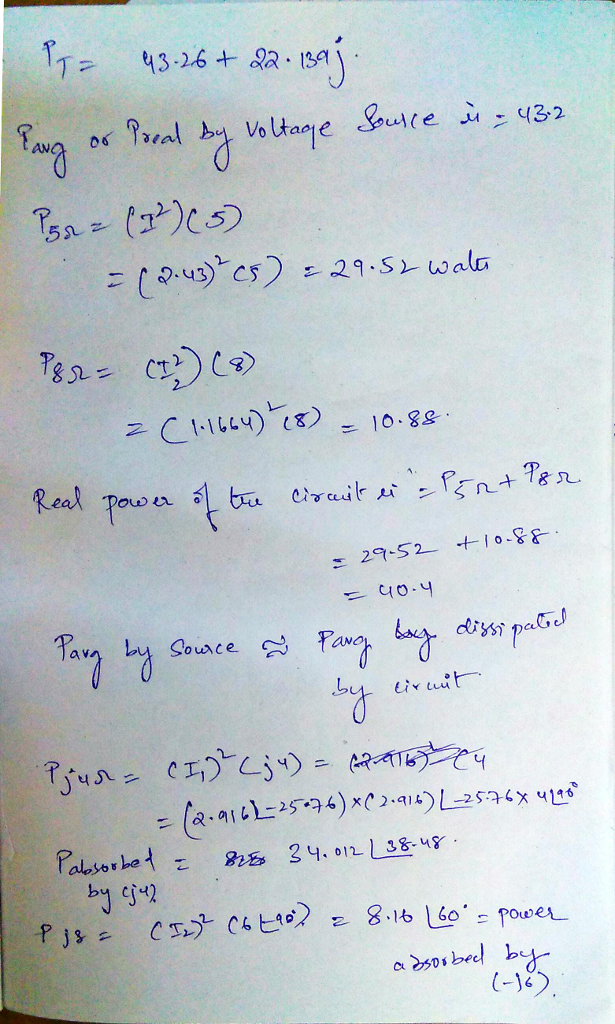 P_T = 43.26 + 22.139j.
Pavg or Preal by Voltage Source is = 43.2
P5Ω = (I²)(5)
= (2.43)² (5) = 29.52 watts
P8Ω = (I₂²) (8)
= (1.1664)² (8) = 10.88.
Real power of the circuit is = P5Ω + P8Ω
= 29.52 + 10.88.
= 40.4
Pavg by Source ≈ Pavg dissipated
by circuit
Pj4Ω = (I₁)² (j4) =
= (2.916∠-25.76) × (2.916)∠-25.76 × 4∠90°
Pabsorbed = 34.012∠38.48.
by (j4)
Pj8 = (I₂)² (6∠90°) = 8.16∠60° = power
absorbed by
(-j6).